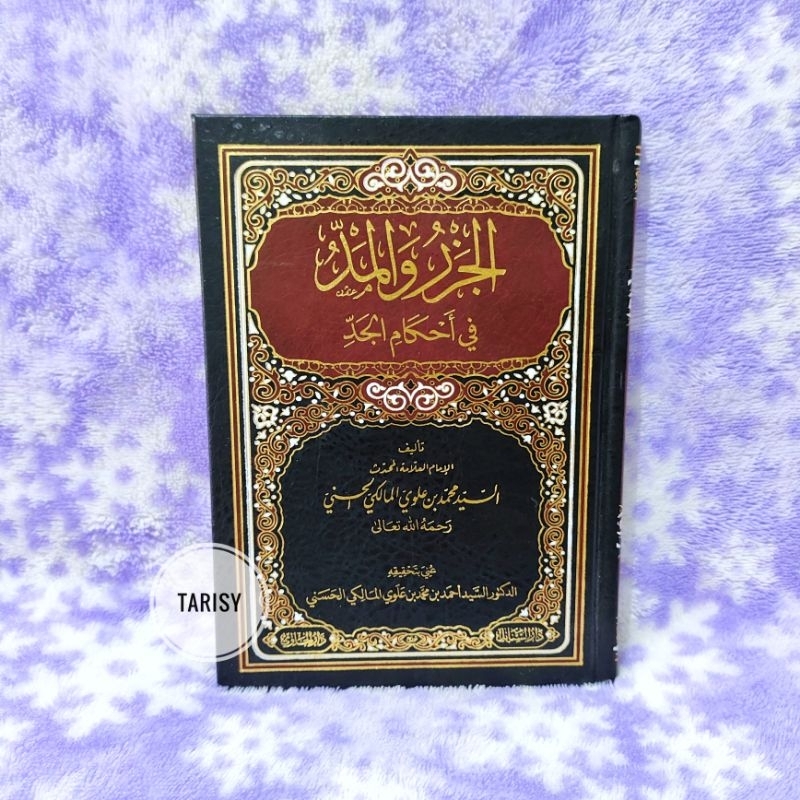 الجَزَرُ وَالمَدُّ
فِي أَحْكَامِ الجَدِّ
تأليف
الإمام العلامة المحدث
السيد محمد بن علوي المالكي الحسني
رَحمَهُ الله تعالى
عُني بتحقيقه
الدكتور السيد أحمد بن محمد بن علوي المالكي الحسني
TARISY